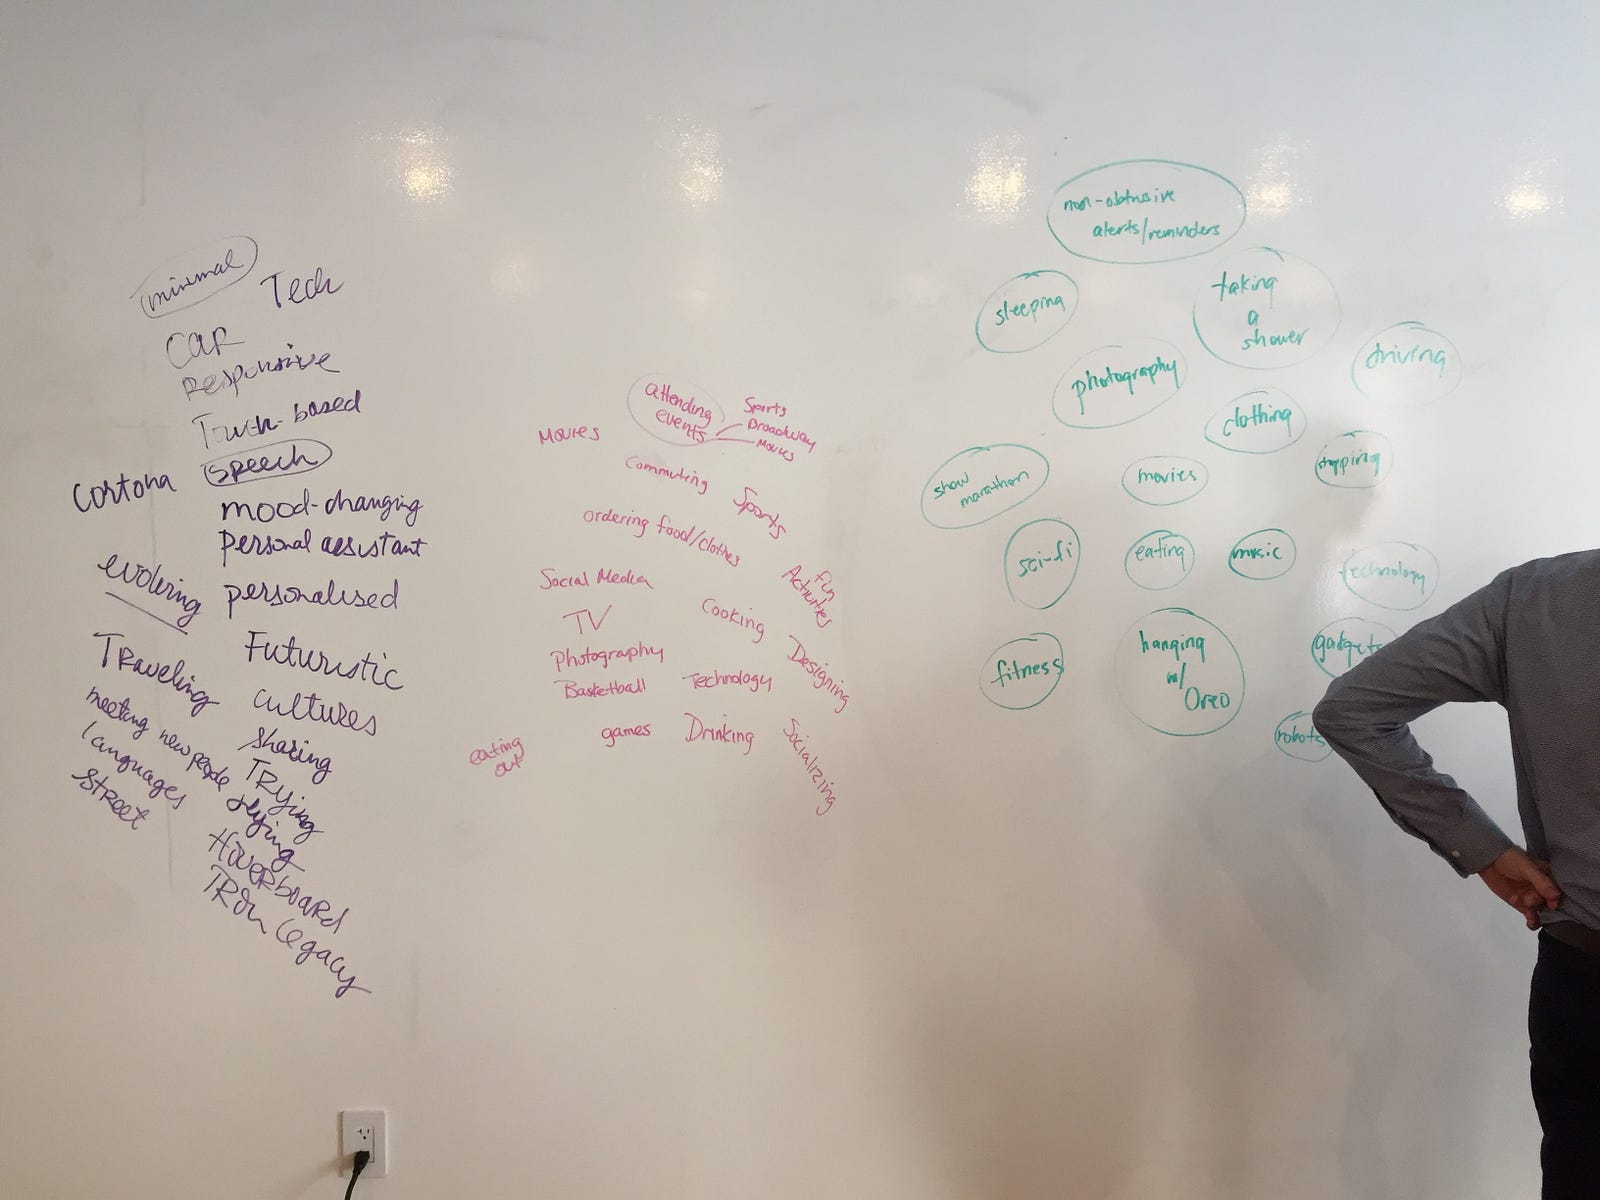 minimal
Tech
CAR
Responsive
Touch-based
speech
Cortona
mood-changing
personal assistant
evolving
personalised
Futuristic
Traveling
cultures
meeting new people
sharing
languages
TRying
street
HoverboaRd
TRon Legacy
attending
events
Sports
Broadway
Movies
Movies
Commuting
Sports
ordering food/clothes
Social Media
Fun
Activities
TV
Cooking
Photography
Designing
Basketball
Technology
games
Drinking
Socializing
eating
out
non-obtrusive
alerts/reminders
sleeping
taking
a
shower
driving
photography
clothing
show
marathon
movies
sci-fi
eating
music
technology
fitness
hanging
w/
Oreo
gadgets
robots